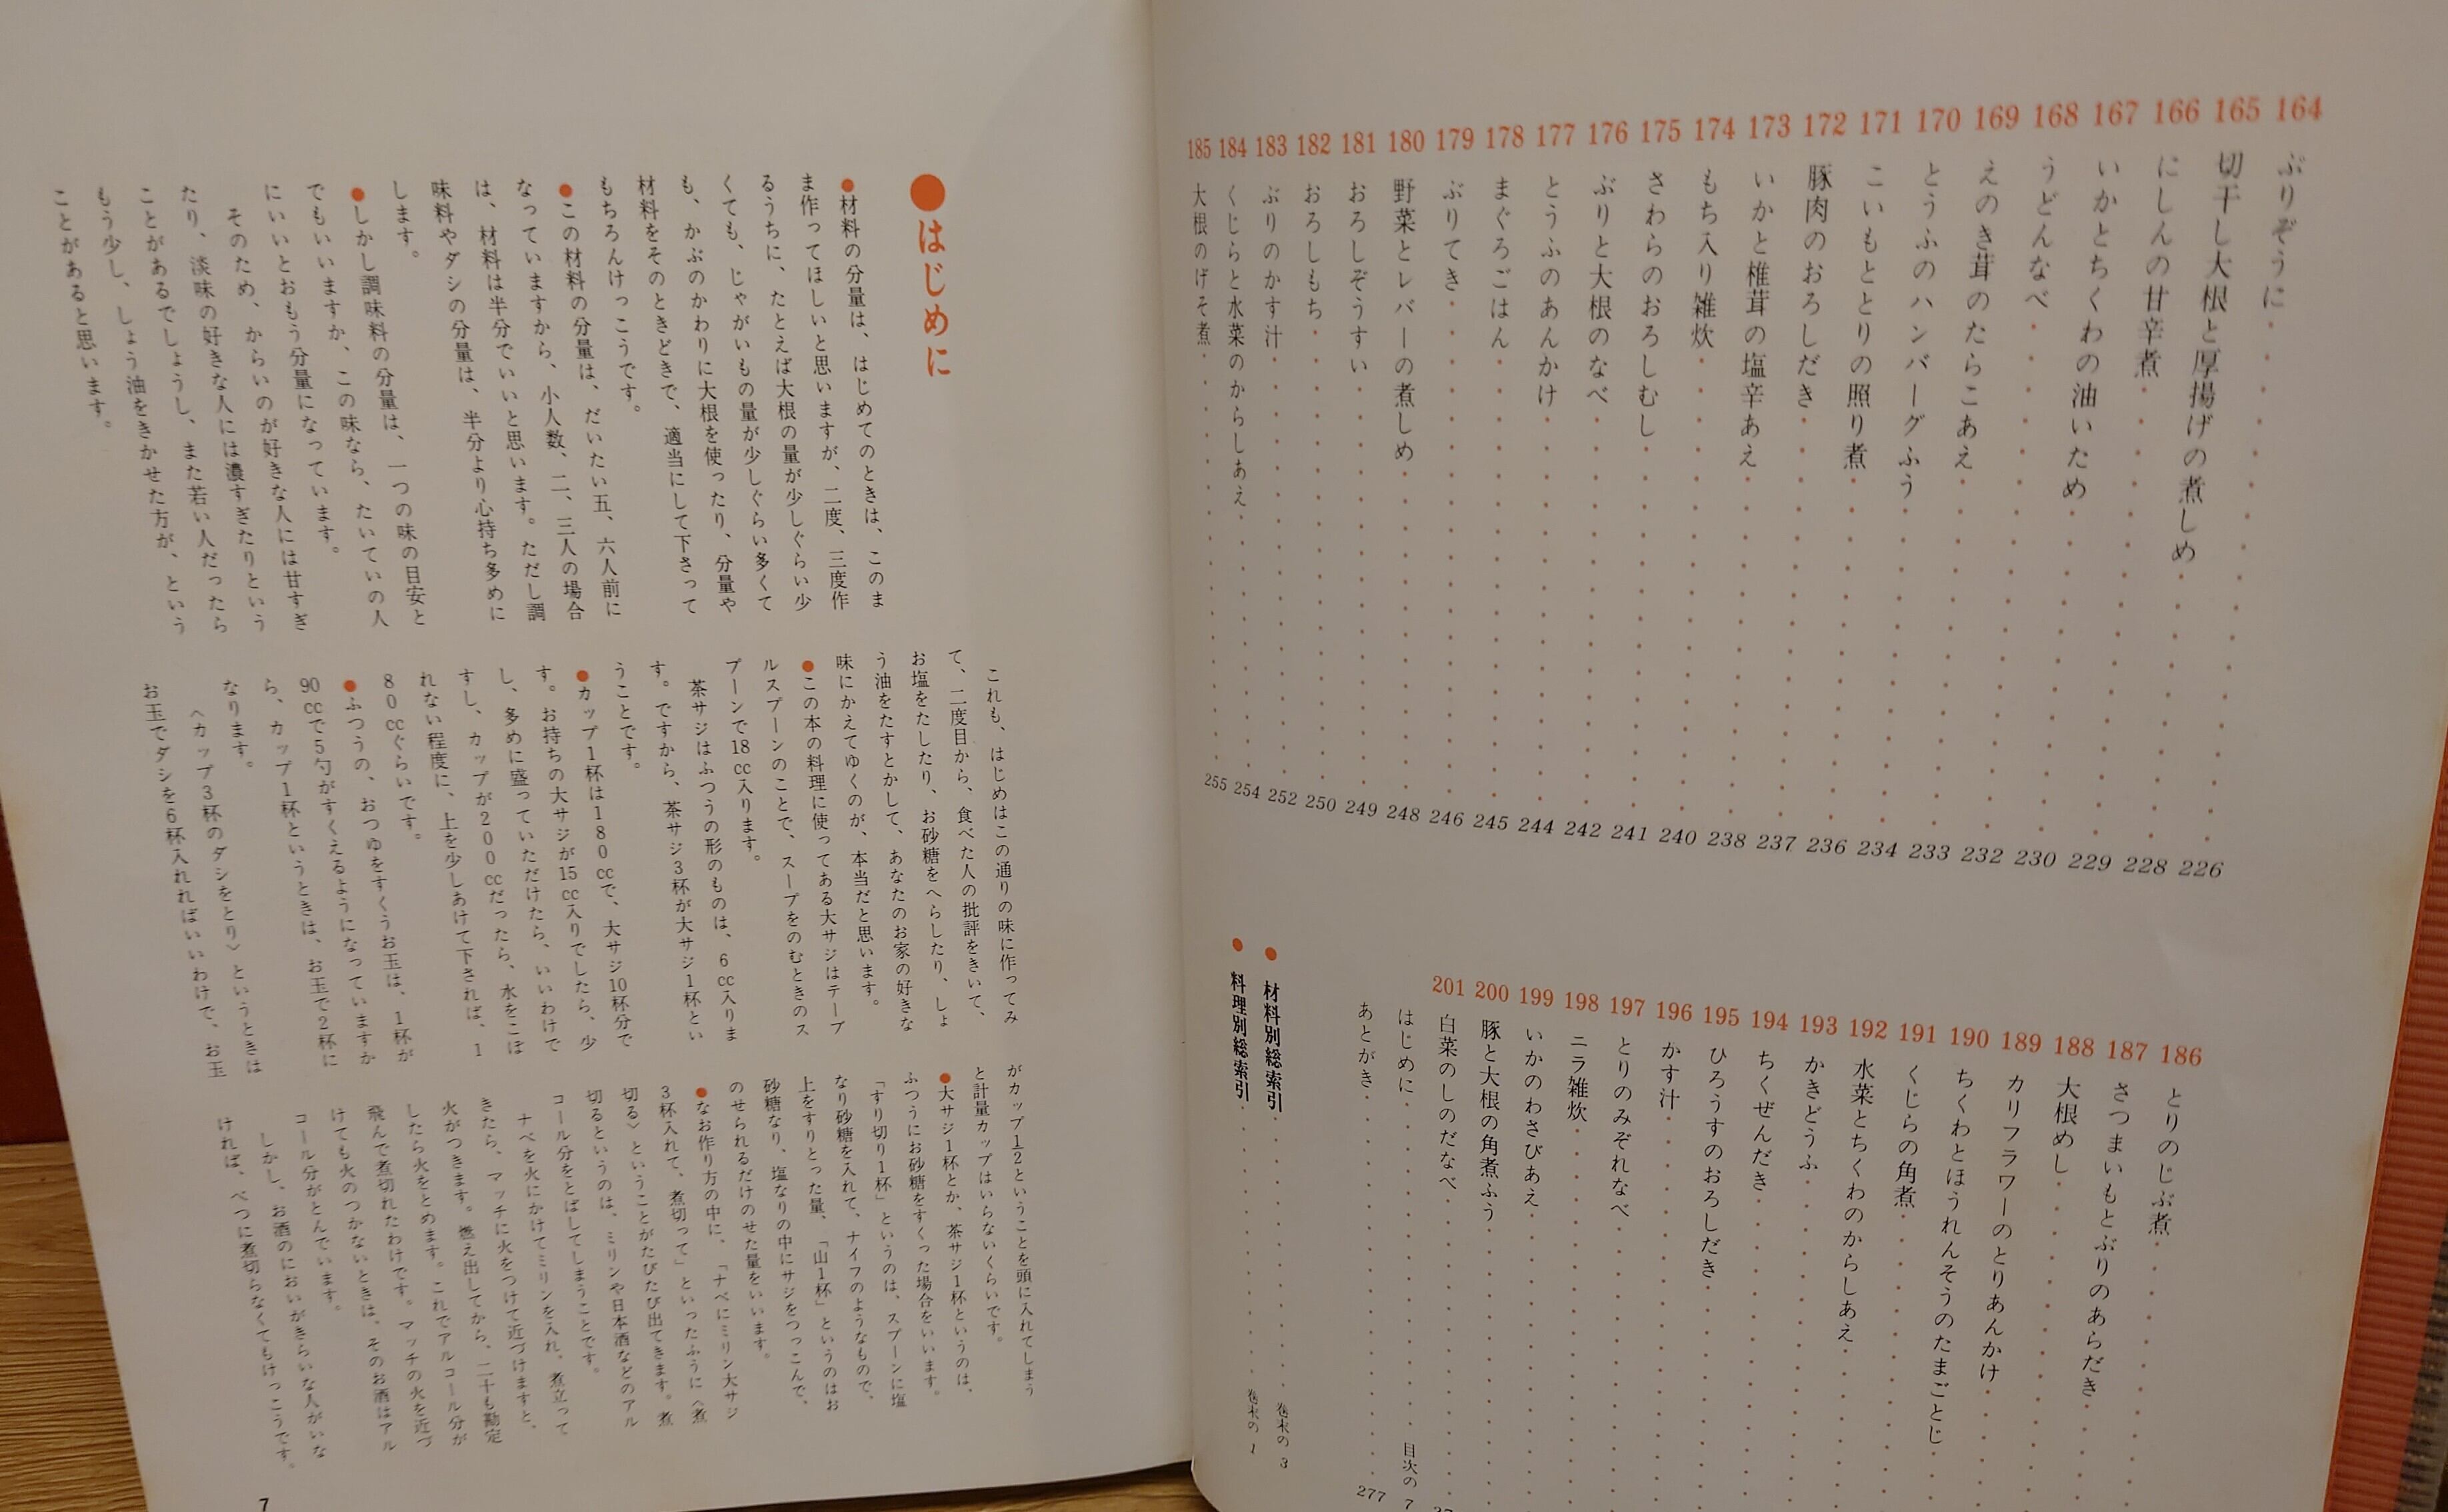 164 ぶりぞうに 226
165 切干し大根と厚揚げの煮しめ 228
166 にしんの甘辛煮 229
167 いかとちくわの油いため 230
168 うどんなべ 232
169 えのき茸のたらこあえ 233
170 とうふのハンバーグふう 234
171 こいもととりの照り煮 236
172 豚肉のおろしだき 237
173 いかと椎茸の塩辛あえ 238
174 もち入り雑炊 240
175 さわらのおろしむし 241
176 ぶりと大根のなべ 242
177 とうふのあんかけ 244
178 まぐろごはん 245
179 ぶりてき 246
180 野菜とレバーの煮しめ 248
181 おろしぞうすい 249
182 おろしもち 250
183 ぶりのかす汁 252
184 くじらと水菜のからしあえ 254
185 大根のげそ煮 255
186 とりのじぶ煮
187 さつまいもとぶりのあらだき
188 大根めし
189 カリフラワーのとりあんかけ
190 ちくわとほうれんそうのたまごとじ
191 くじらの角煮
192 水菜とちくわのからしあえ
193 かきどうふ
194 ちくぜんだき
195 ひろうすのおろしだき
196 かす汁
197 とりのみぞれなべ
198 ニラ雑炊
199 いかのわさびあえ
200 豚と大根の角煮ふう
201 白菜のしのだなべ
はじめに 目次の 7
あとがき 277
●材料別総索引 巻末の 3
●料理別総索引 巻末の 1
●はじめに
●材料の分量は、はじめてのときは、このま
ま作ってほしいと思いますが、二度、三度作
るうちに、たとえば大根の量が少しぐらい少
くても、じゃがいもの量が少しぐらい多くて
も、かぶのかわりに大根を使ったり、分量や
材料をそのときどきで、適当にして下さって
もちろんけっこうです。
●この材料の分量は、だいたい五、六人前に
なっていますから、小人数、二、三人の場合
は、材料は半分でいいと思います。ただし調
味料やダシの分量は、半分より心持ち多めに
します。
●しかし調味料の分量は、一つの味の目安と
でもいいますか、この味なら、たいていの人
にいいとおもう分量になっています。
そのため、からいのが好きな人には甘すぎ
たり、淡味の好きな人には濃すぎたりという
ことがあるでしょうし、また若い人だったら
もう少し、しょう油をきかせた方が、という
ことがあると思います。
これも、はじめはこの通りの味に作ってみ
て、二度目から、食べた人の批評をきいて、
お塩をたしたり、お砂糖をへらしたり、しょ
う油をたすとかして、あなたのお家の好きな
味にかえてゆくのが、本当だと思います。
●この本の料理に使ってある大サジはテーブ
ルスプーンのことで、スープをのむときのス
プーンで18cc入ります。
茶サジはふつうの形のものは、6cc入りま
す。ですから、茶サジ3杯が大サジ1杯とい
うことです。
●カップ1杯は180ccで、大サジ10杯分で
す。お持ちの大サジが15cc入りでしたら、少
し、多めに盛っていただけたら、いいわけで
すし、カップが200ccだったら、水をこぼ
れない程度に、上を少しあけて下されば、1
80ccぐらいです。
●ふつうの、おつゆをすくうお玉は、1杯が
90ccで5勺がすくえるようになっていますか
ら、カップ1杯というときは、お玉で2杯に
なります。
〈カップ3杯のダシをとり〉というときは
お玉でダシを6杯入れればいいわけで、お玉
がカップ1/2ということを頭に入れてしまう
と計量カップはいらないくらいです。
●大サジ1杯とか、茶サジ1杯というのは、
ふつうにお砂糖をすくった場合をいいます。
「すり切り1杯」というのは、スプーンに塩
なり砂糖を入れて、ナイフのようなもので、
上をすりとった量、「山1杯」というのはお
砂糖なり、塩なりの中にサジをつっこんで、
のせられるだけのせた量をいいます。
●なお作り方の中に、「ナベにミリン大サジ
3杯入れて、煮切って」といったふうに〈煮
切る〉ということがたびたび出てきます。煮
切るというのは、ミリンや日本酒などのアル
コール分をとばしてしまうことです。
ナベを火にかけてミリンを入れ、煮立って
きたら、マッチに火をつけて近づけますと、
火がつきます。燃え出してから、二十も勘定
したら火をとめます。これでアルコール分が
飛んで煮切れたわけです。マッチの火を近づ
けても火のつかないときは、そのお酒はアル
コール分がとんでいます。
しかし、お酒のにおいがきらいな人がいな
ければ、べつに煮切らなくてもけっこうです。
7